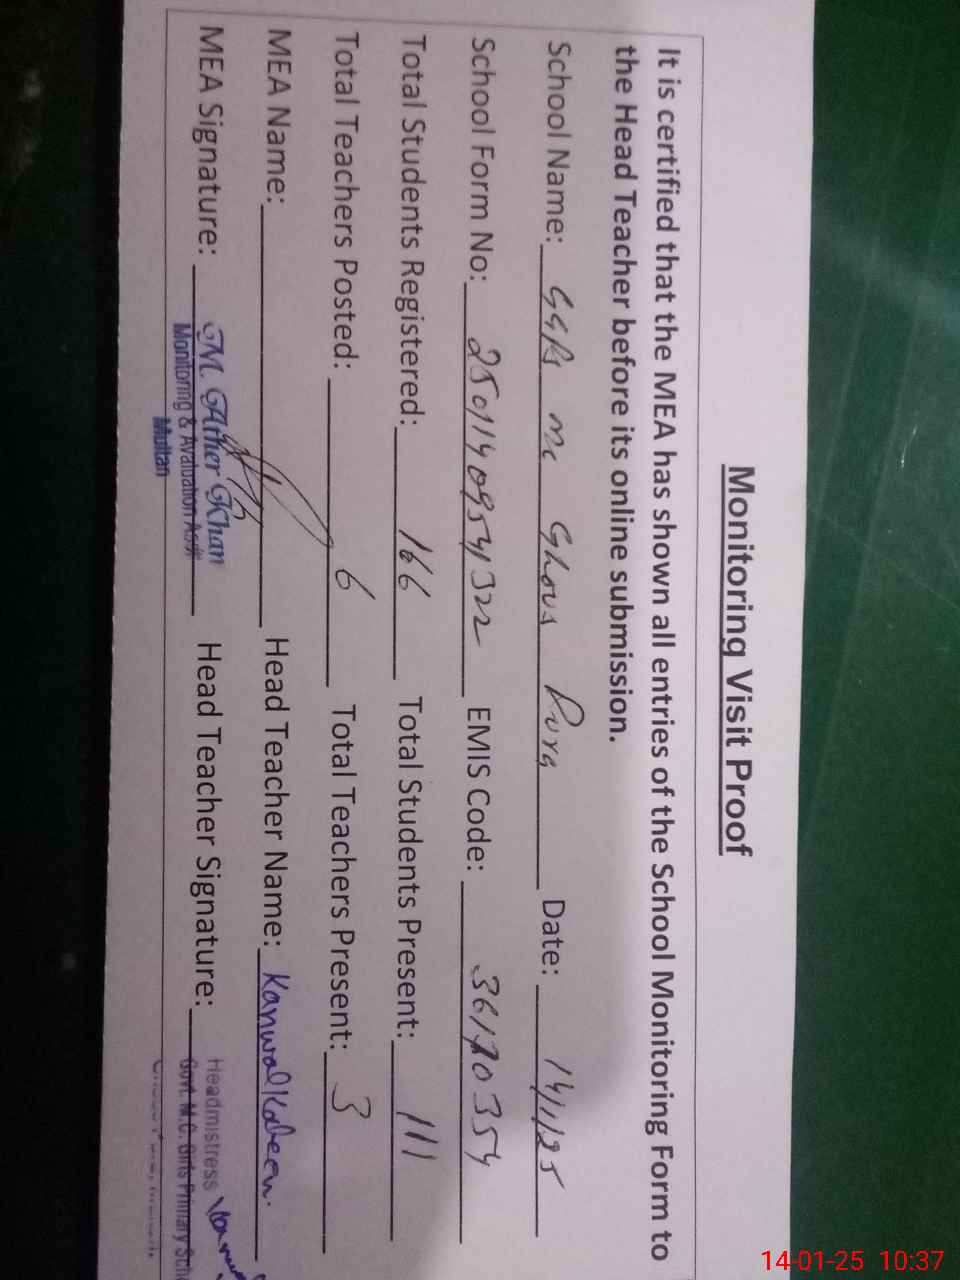 Monitoring Visit Proof
It is certified that the MEA has shown all entries of the School Monitoring Form to
the Head Teacher before its online submission.
School Name: GGPS mc Ghous Pura Date: 14/1/25
School Form No: 25011409541322 EMIS Code: 36120354
Total Students Registered: 166 Total Students Present: 111
Total Teachers Posted: 6 Total Teachers Present: 3
MEA Name: Head Teacher Name: Kanwal
MEA Signature: M. Ather Khan Head Teacher Signature: Headmistress
Monitoring & Avaluation Govt. M.C. Girls Primary
Multan
14-01-25 10:37